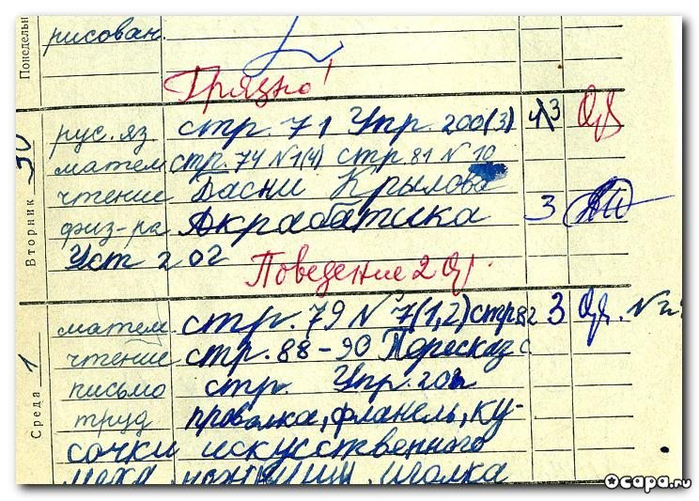 Понедельн
рисован.
Грязно!
Вторник 30
рус. яз стр. 71 Упр. 200(3) 4/3
матем стр. 74 N 1(4) стр. 81 N 10
чтение Басни Крылова
физ-ра Акрабатика 3
Уст 202
Поведение 2
Среда 1
матем. стр. 79 N 7(1,2) стр 82 3
чтение стр. 88-90 Пересказ
письмо стр. Упр. 202
труд проволка, фланель, ку-
сочки искусственного
меха, ножницы иголка
осара.ru